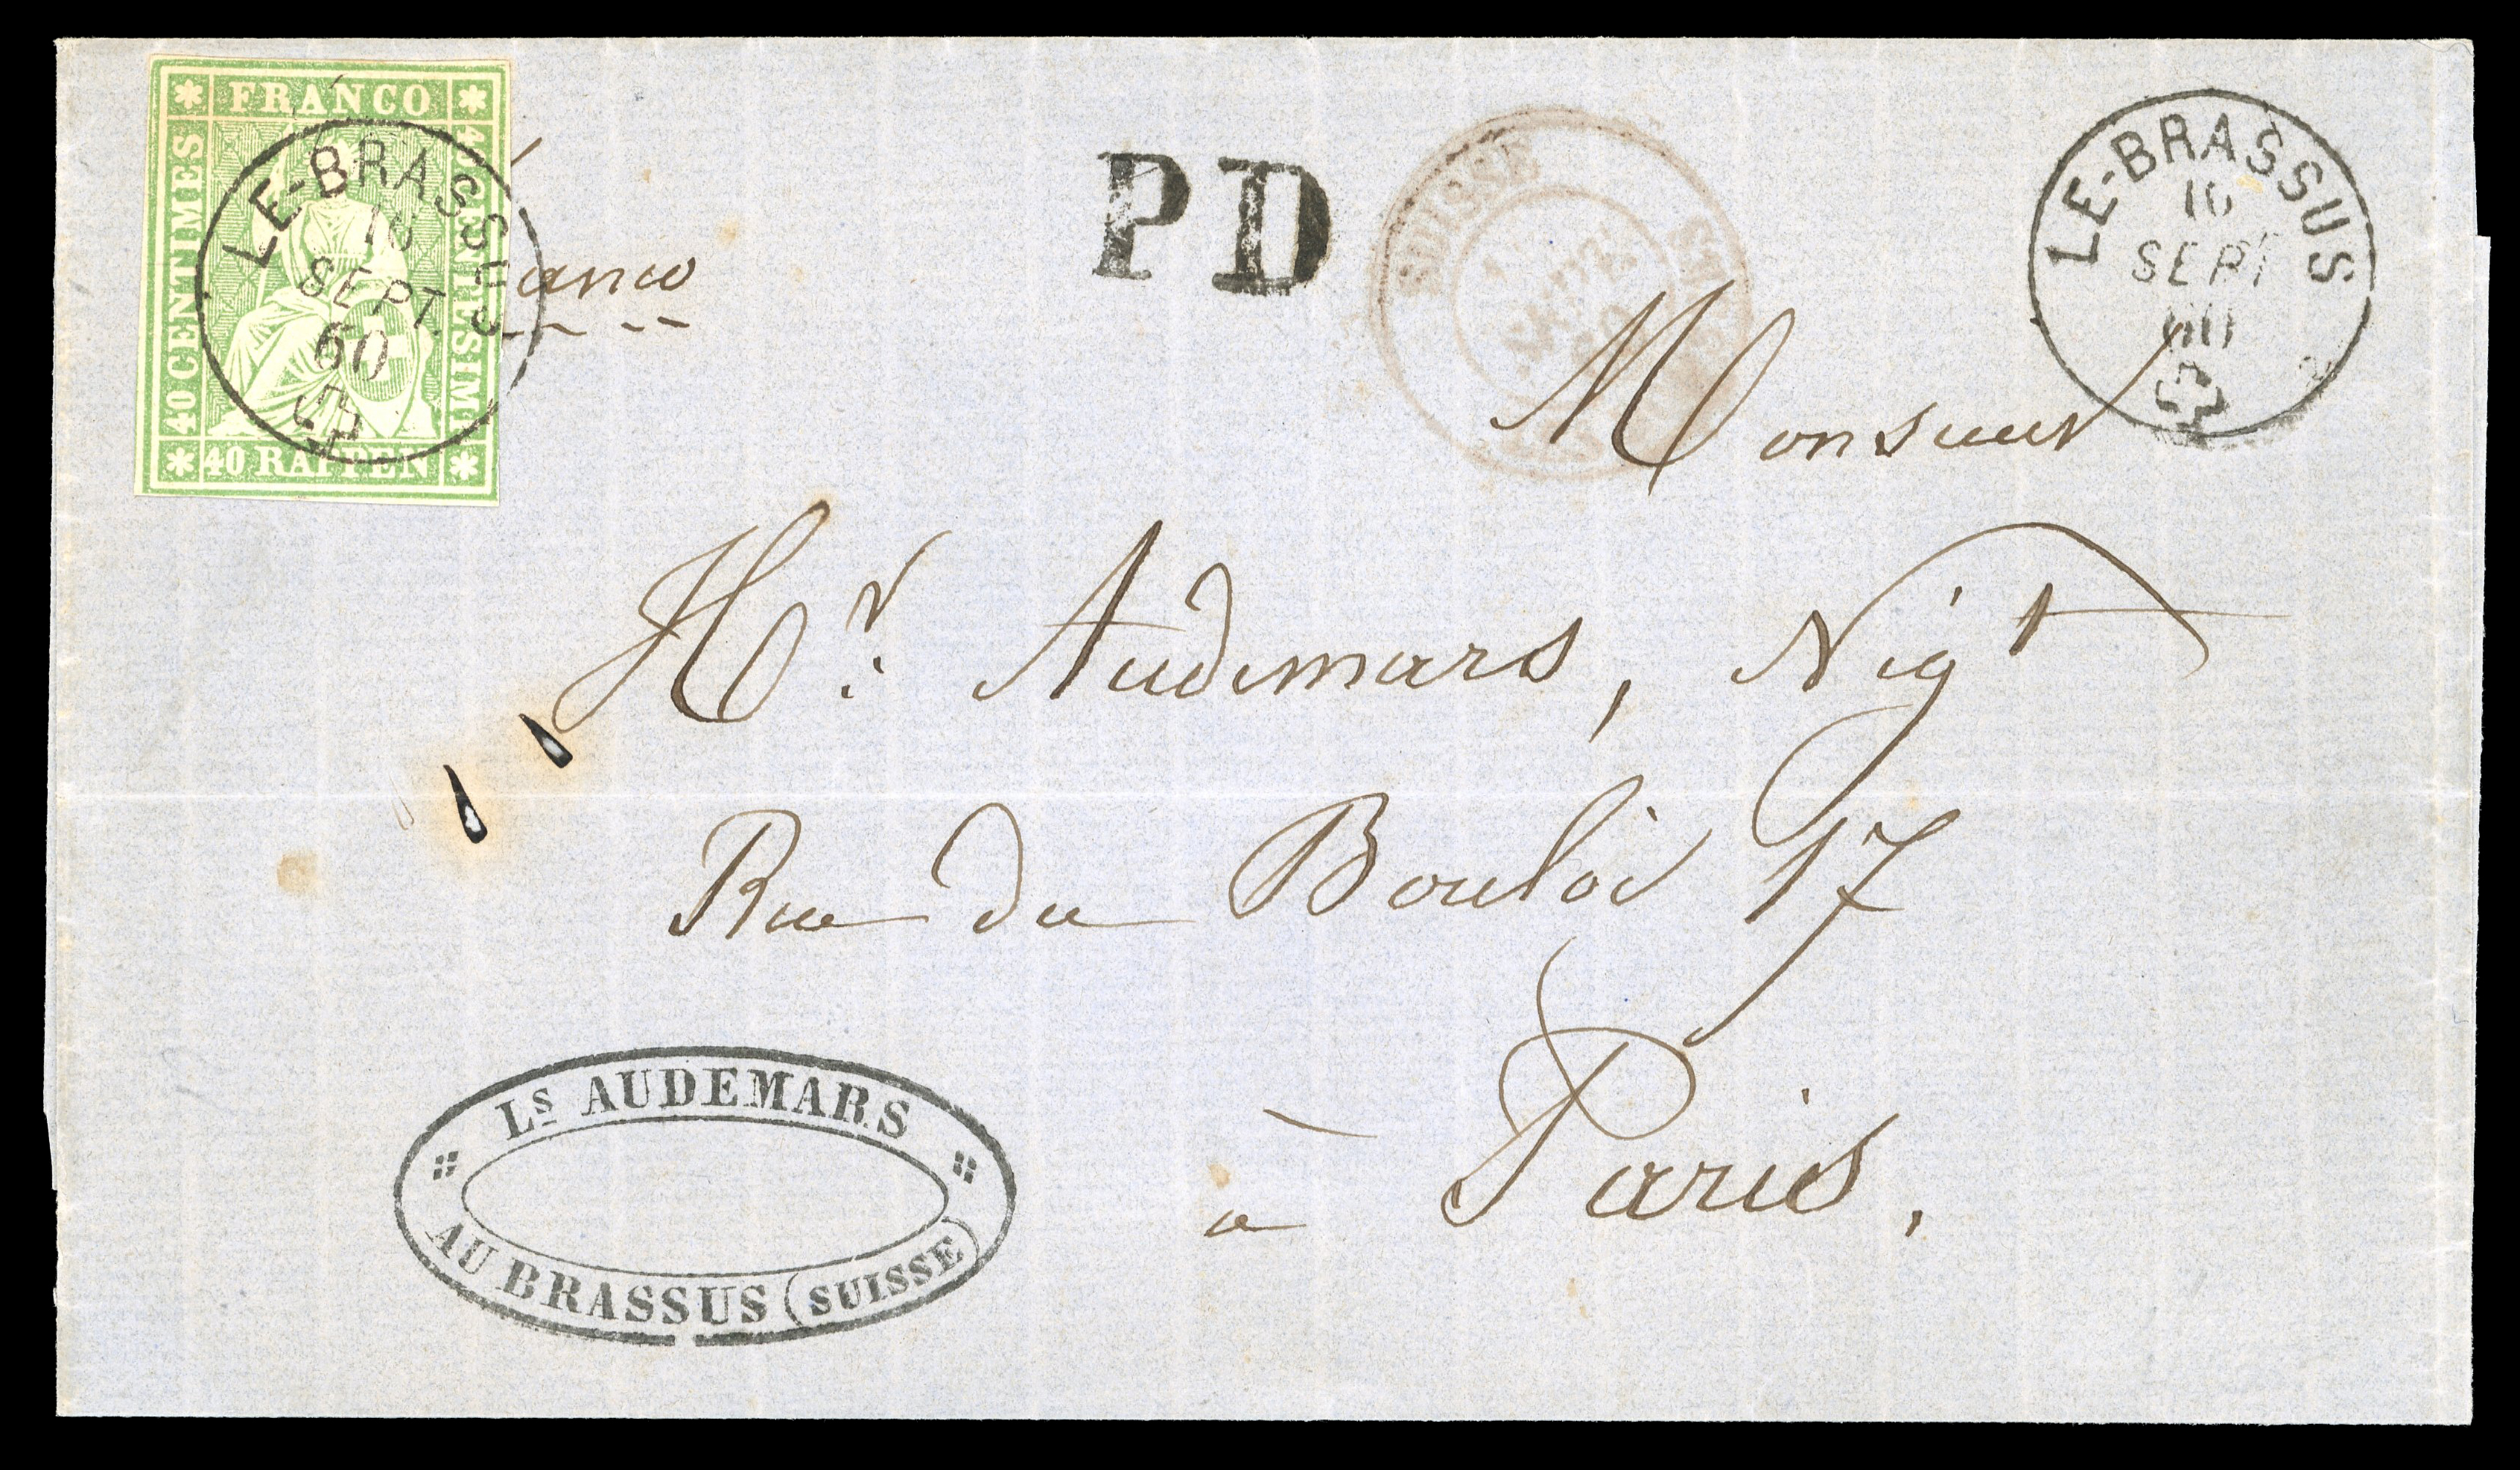 FRANCO
40 CENTIMES
40 CENTESIMI
40 RAPPEN
LE-BRASSUS
16
SEPT.
60
anco
PD
SUISSE
LE-BRASSUS
16
SEPT
60
Monsieur
Hr. Audemars, Nigt
Rue du Bouloi 17
à Paris.
Ls AUDEMARS
AU BRASSUS (SUISSE)